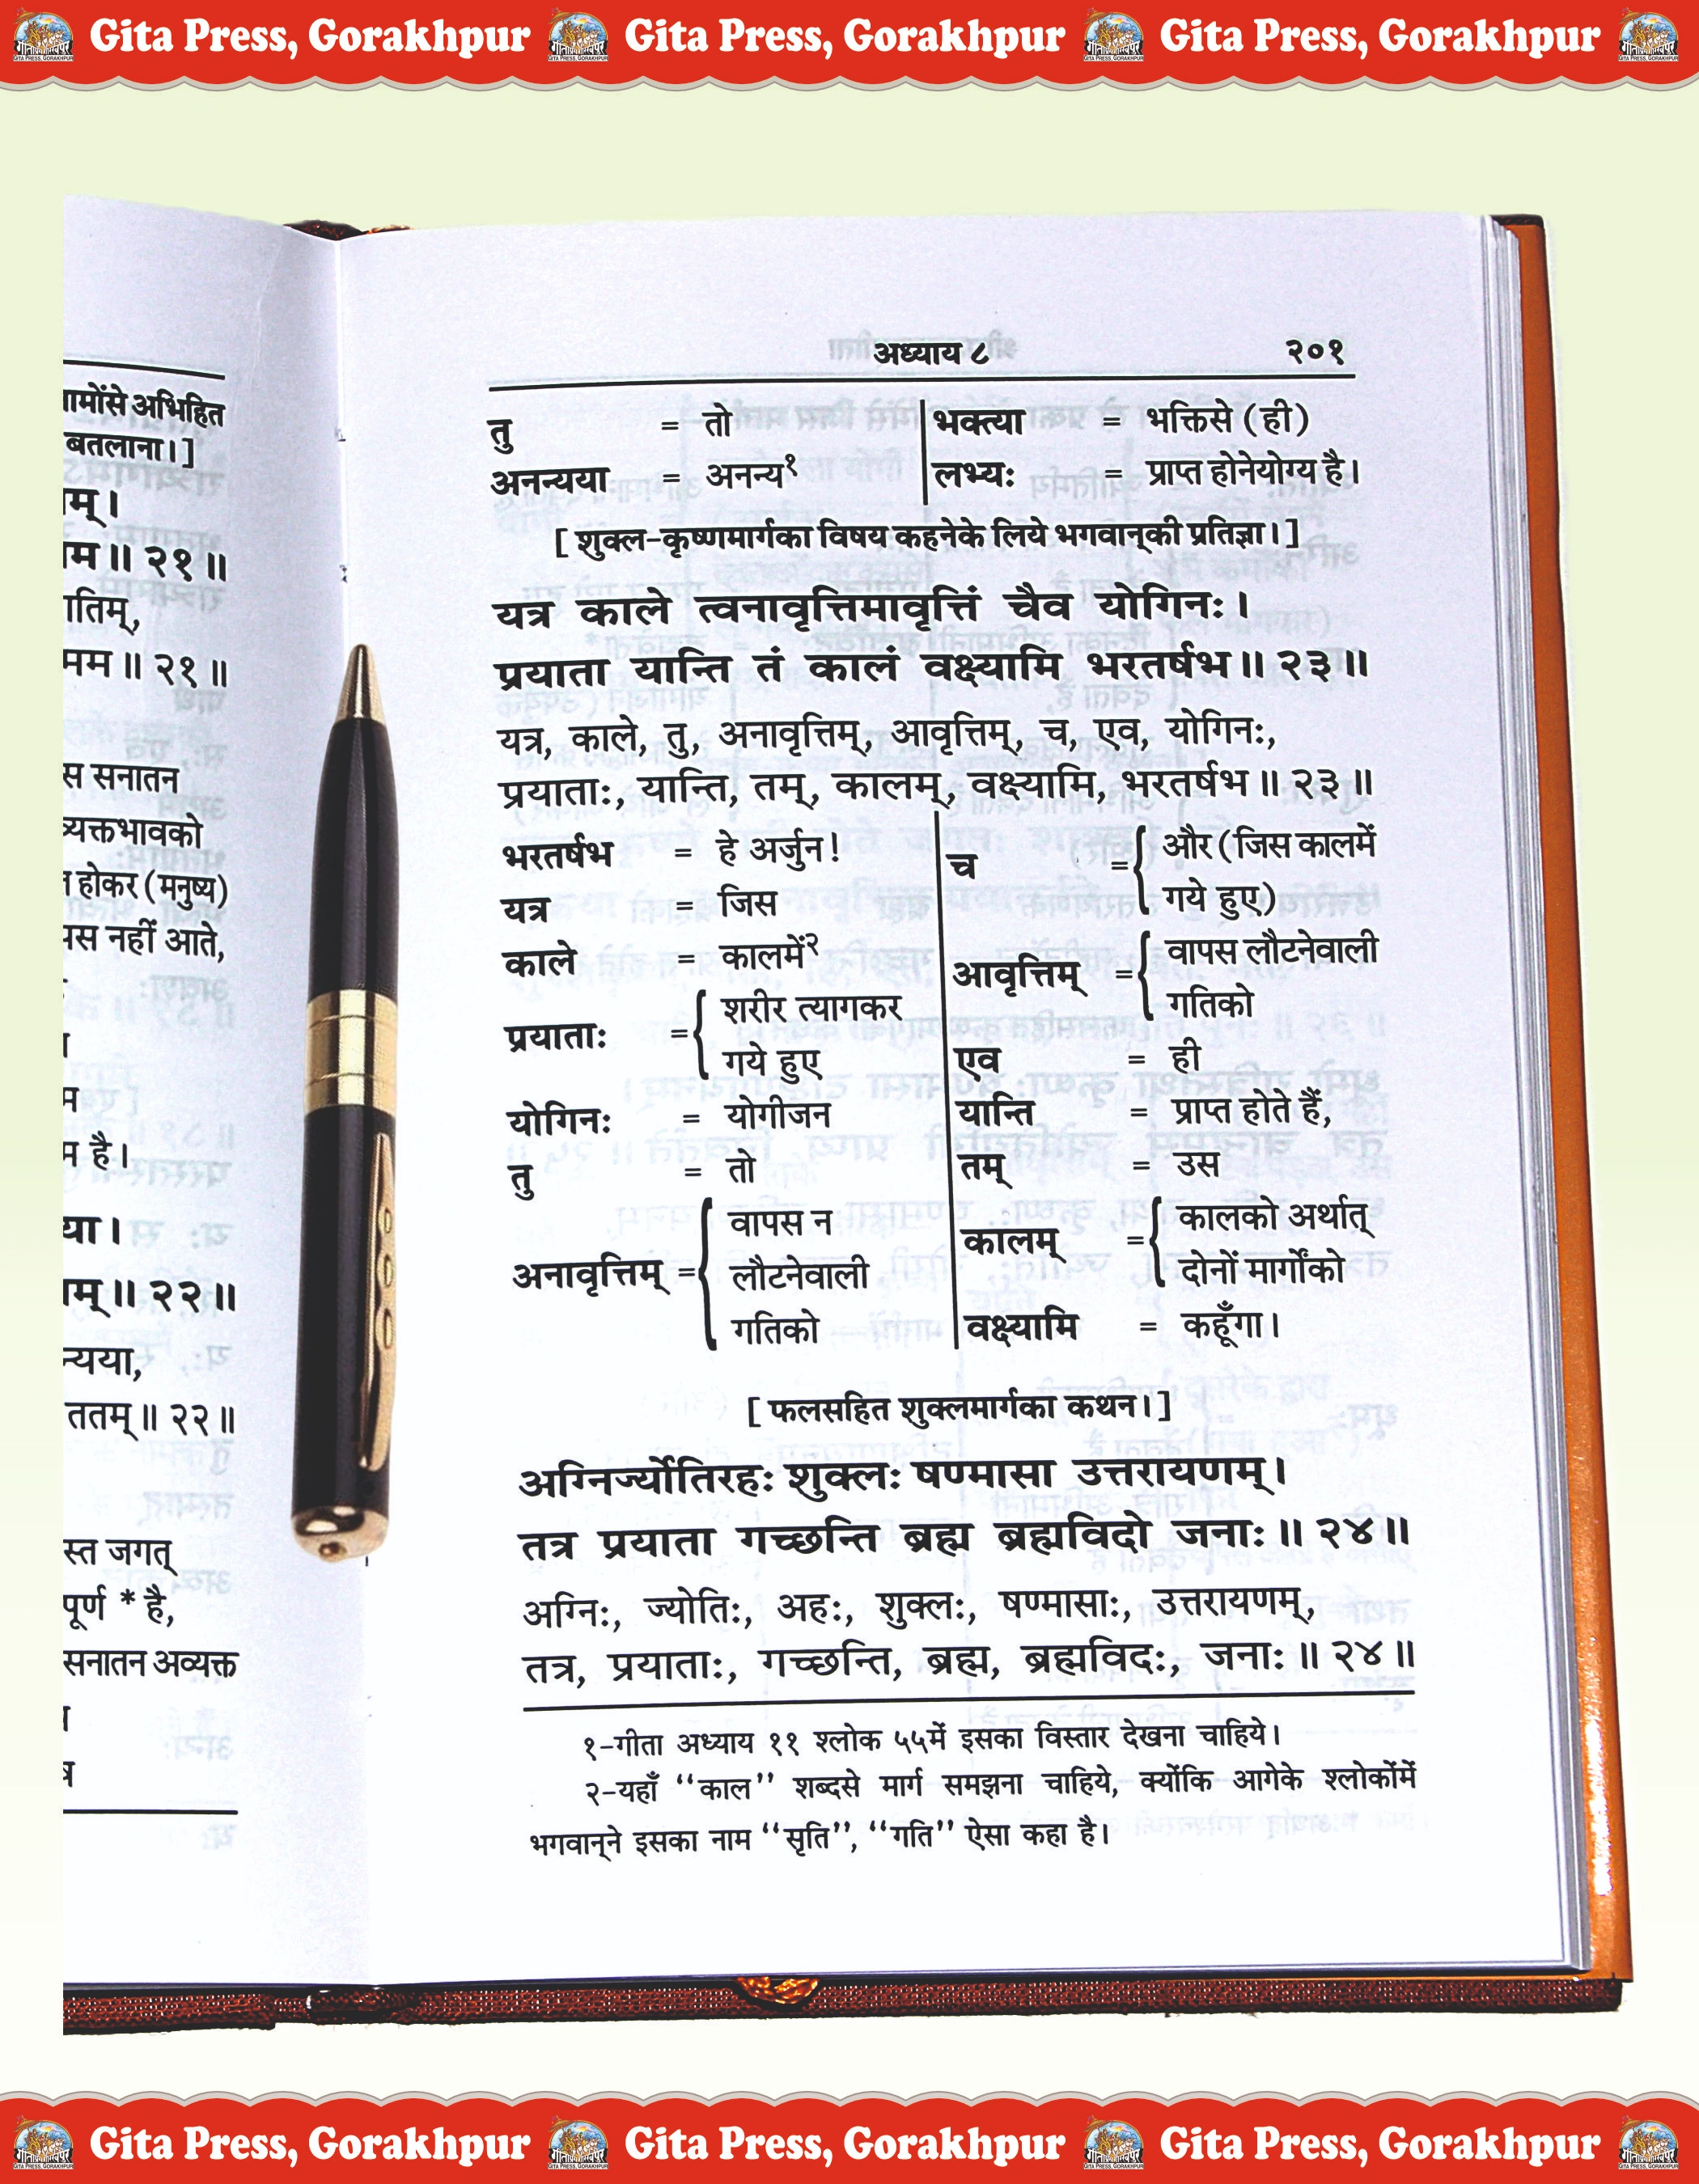 Gita Press, Gorakhpur Gita Press, Gorakhpur Gita Press, Gorakhpur
अभिहित
बतलाना।]
॥ २१ ॥
मम ॥ २१ ॥
सनातन
होकर (मनुष्य)
नहीं आते,
है।
॥ २२ ॥
ततम् ॥ २२ ॥
जगत्
* है,
सनातन अव्यक्त
अध्याय ८ २०१
तु = तो
अनन्यया = अनन्य१
भक्त्या = भक्तिसे (ही)
लभ्यः = प्राप्त होनेयोग्य है।
[ शुक्ल-कृष्णमार्गका विषय कहनेके लिये भगवान्‌की प्रतिज्ञा। ]
यत्र काले त्वनावृत्तिमावृत्तिं चैव योगिनः।
प्रयाता यान्ति तं कालं वक्ष्यामि भरतर्षभ ॥ २३ ॥
यत्र, काले, तु, अनावृत्तिम्, आवृत्तिम्, च, एव, योगिनः,
प्रयाताः, यान्ति, तम्, कालम्, वक्ष्यामि, भरतर्षभ ॥ २३ ॥
भरतर्षभ = हे अर्जुन!
यत्र = जिस
काले = कालमें२
प्रयाताः = { शरीर त्यागकर
गये हुए
योगिनः = योगीजन
तु = तो
अनावृत्तिम् = { वापस न
लौटनेवाली
गतिको
च = { और (जिस कालमें
गये हुए)
आवृत्तिम् = { वापस लौटनेवाली
गतिको
एव = ही
यान्ति = प्राप्त होते हैं,
तम् = उस
कालम् = { कालको अर्थात्
दोनों मार्गोंको
वक्ष्यामि = कहूँगा।
[ फलसहित शुक्लमार्गका कथन। ]
अग्निर्ज्योतिरहः शुक्लः षण्मासा उत्तरायणम्।
तत्र प्रयाता गच्छन्ति ब्रह्म ब्रह्मविदो जनाः ॥ २४ ॥
अग्निः, ज्योतिः, अहः, शुक्लः, षण्मासाः, उत्तरायणम्,
तत्र, प्रयाताः, गच्छन्ति, ब्रह्म, ब्रह्मविदः, जनाः ॥ २४ ॥
१-गीता अध्याय ११ श्लोक ५५में इसका विस्तार देखना चाहिये।
२-यहाँ ‘‘काल’’ शब्दसे मार्ग समझना चाहिये, क्योंकि आगेके श्लोकोंमें
भगवान्‌ने इसका नाम ‘‘सृति’’, ‘‘गति’’ ऐसा कहा है।
Gita Press, Gorakhpur Gita Press, Gorakhpur Gita Press, Gorakhpur